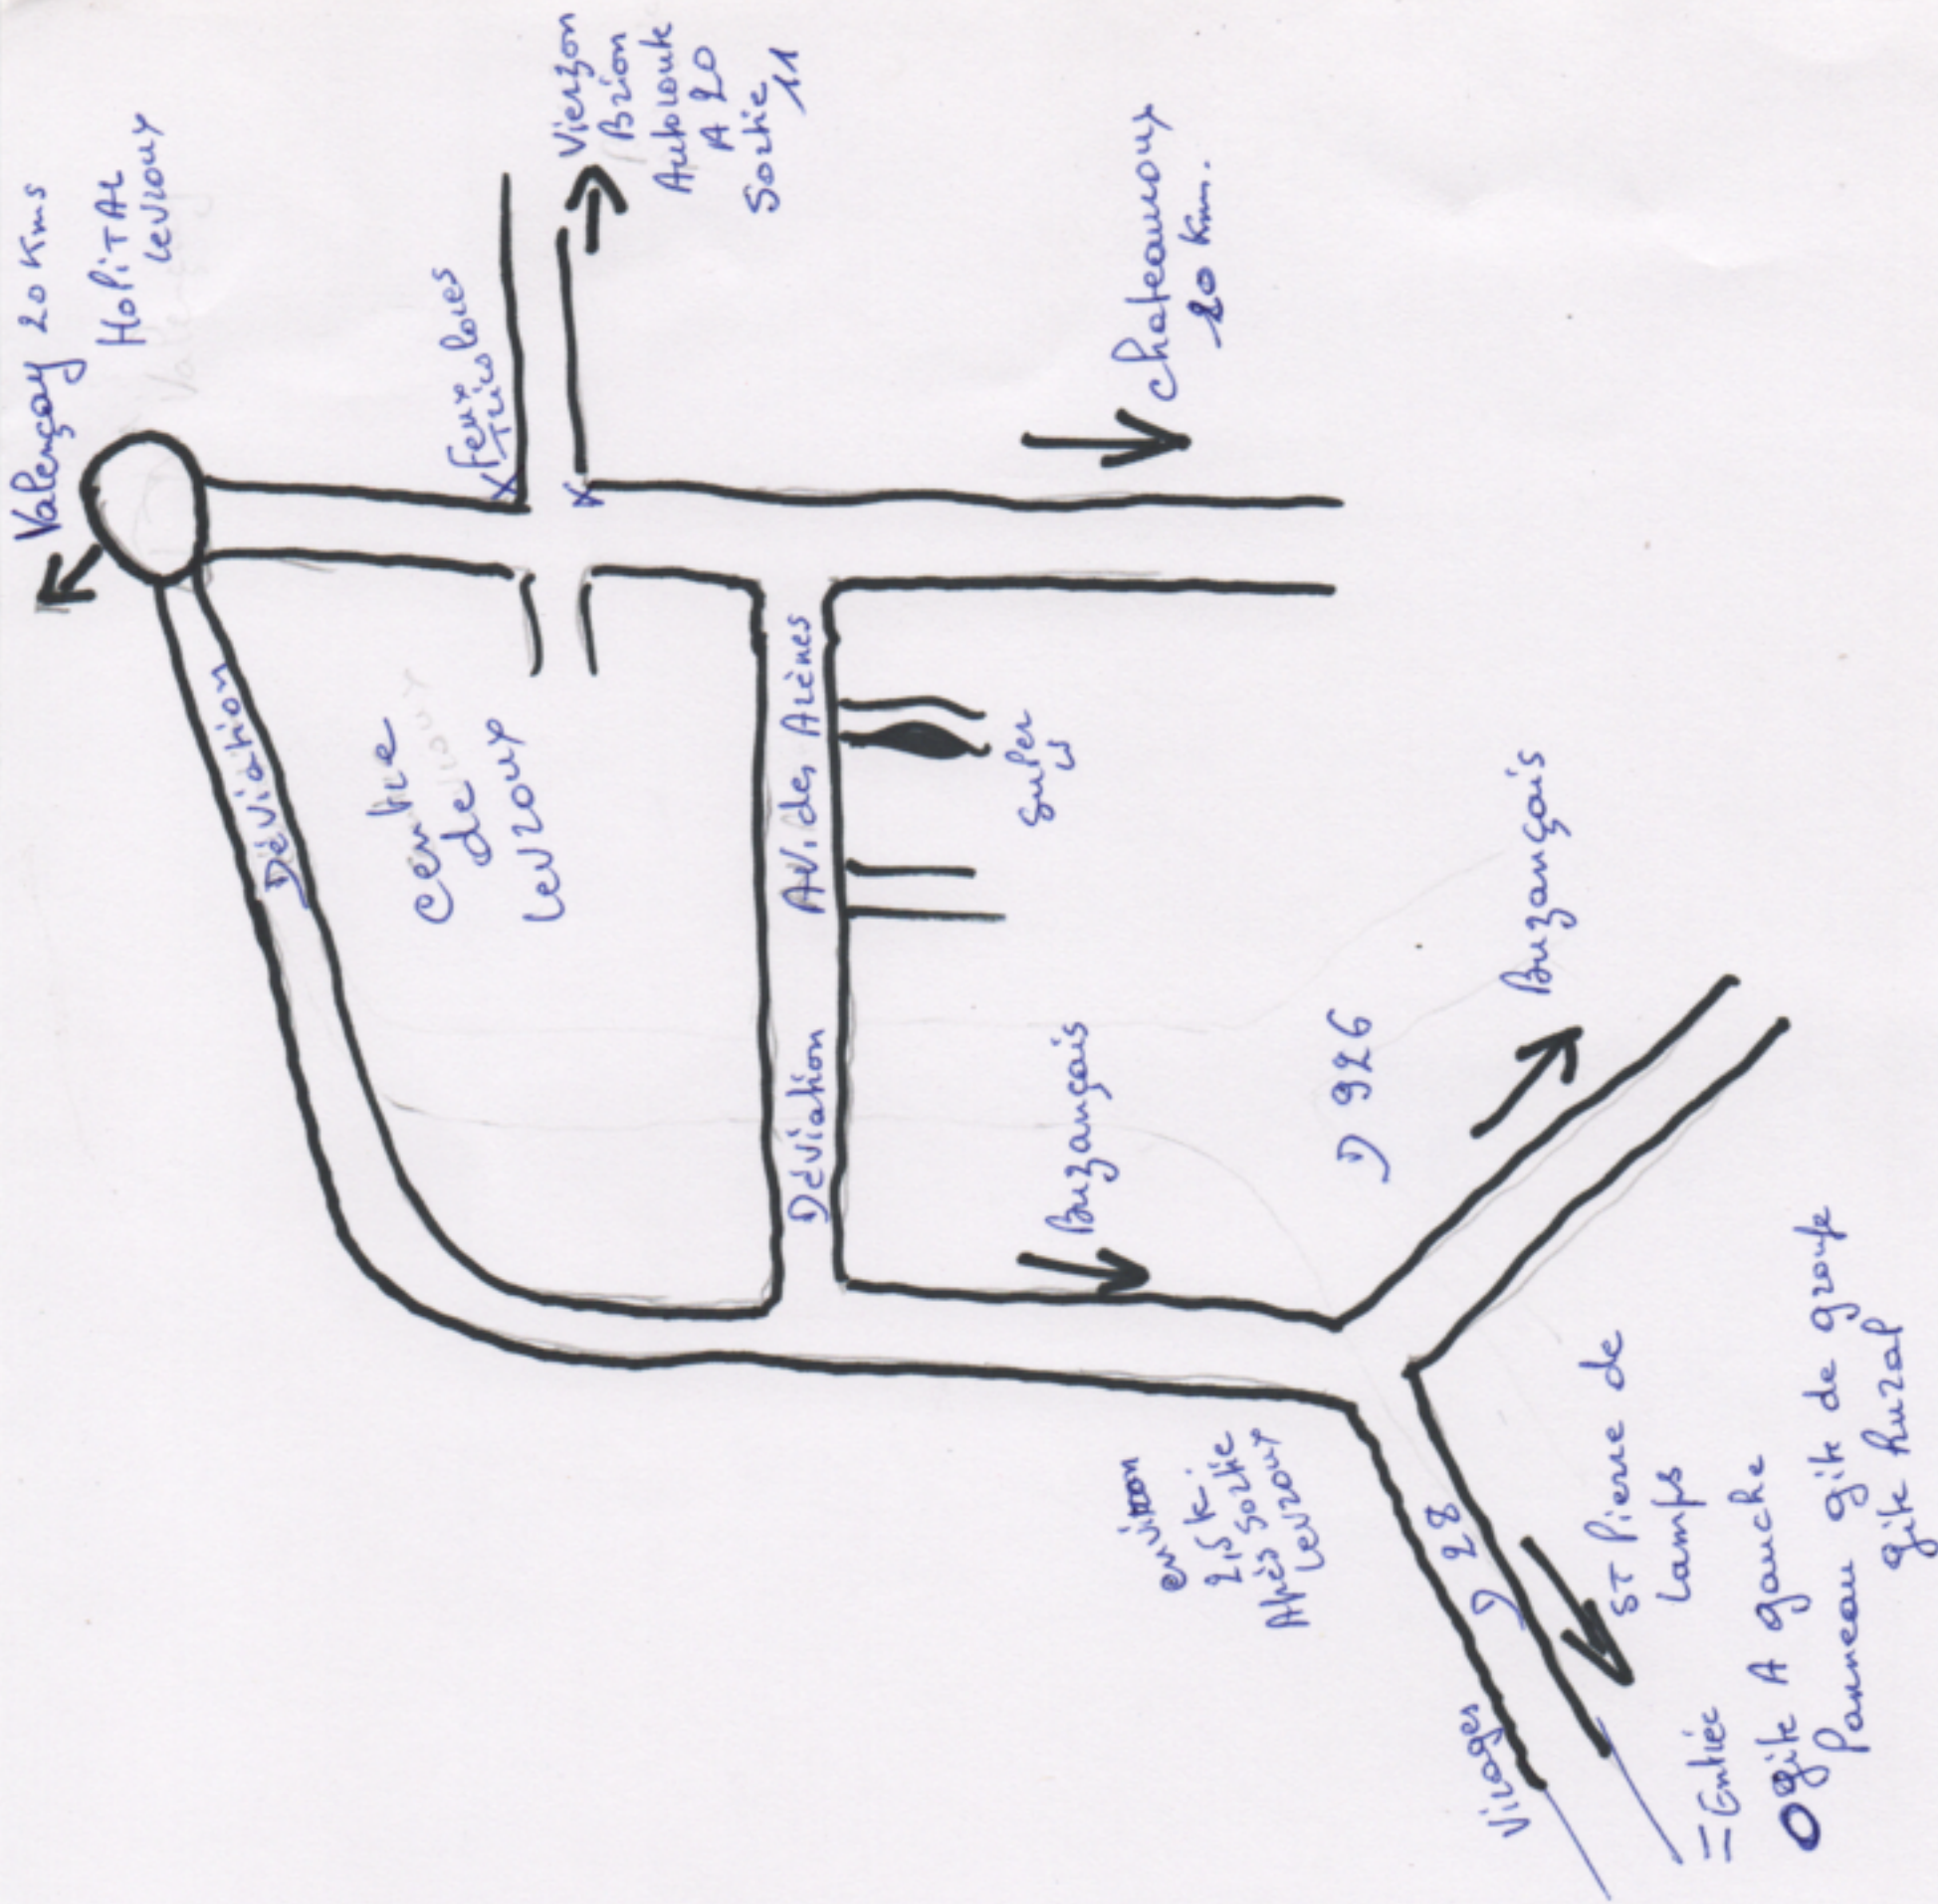 Valençay 20 Kms
HoPiTAL
Levroux
Vierzon
Brion
Autoroute
A 20
Sortie
11
Feux
Tricolores
Chateauroux
20 Km.
Déviation
Centre
de
Levroux
Av. des Arènes
Super
U
Déviation
Buzançais
D 926
Buzançais
environ
2,5 K.
Après Sortie
Levroux
D 28
ST Pierre de
Lamps
Virages
= Entrée
gite A gauche
Panneau gite de groupe
gite Rural